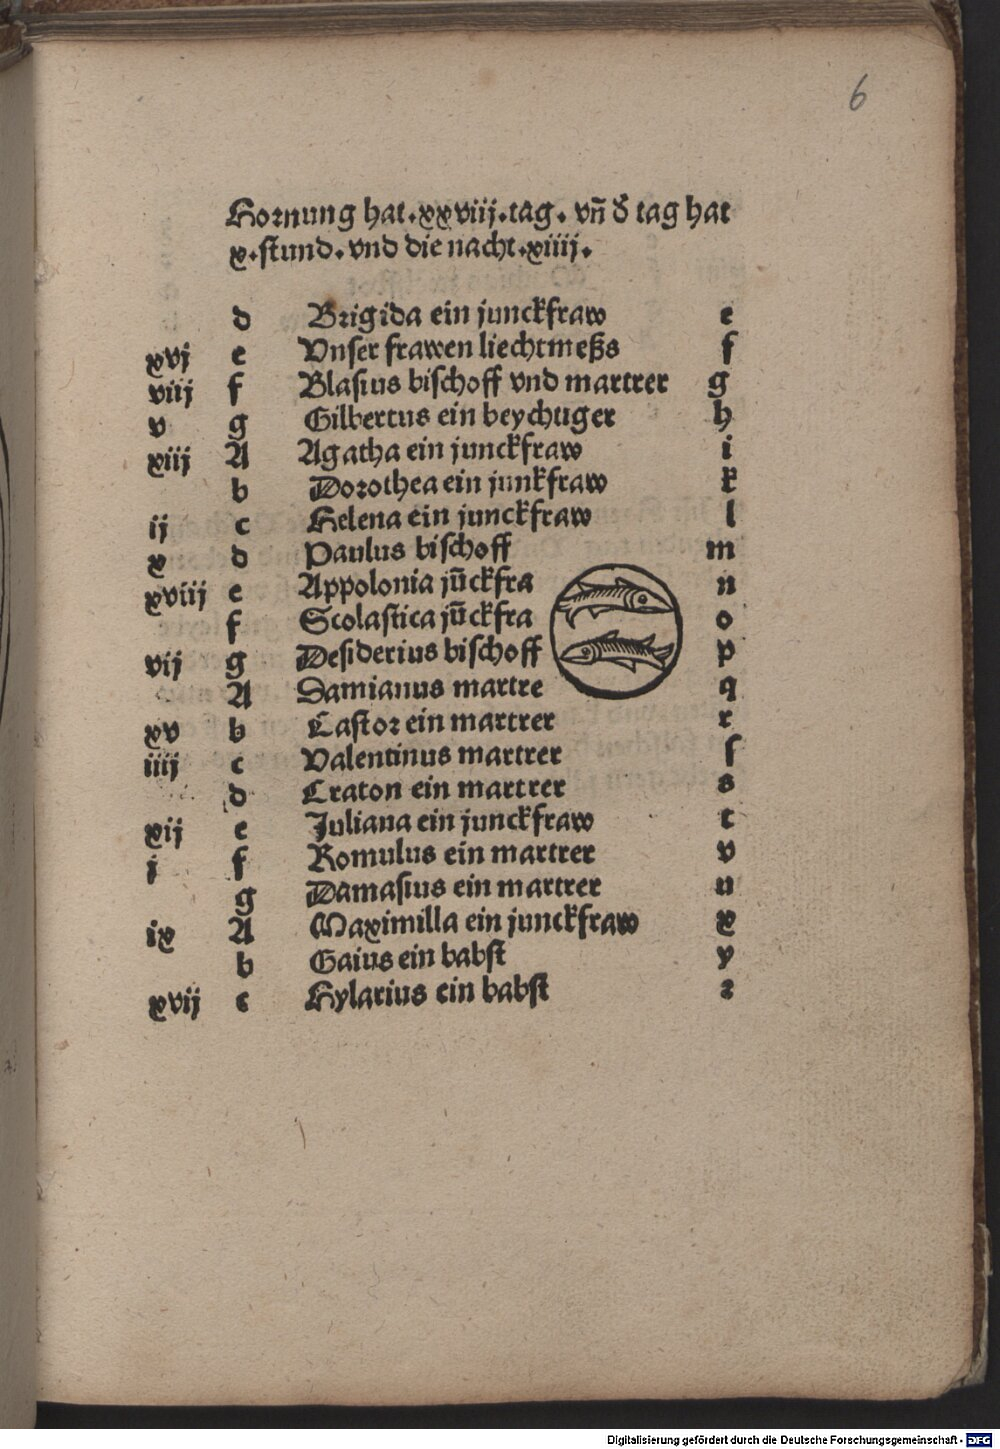 6
Hornung hat.xxviij.tag. vñ d̕ tag hat
x.stund.vnd die nacht.xiiij.
d Brigida ein junckfraw e
xvj e Vnser frawen liechtmeßs f
viij f Blasius bischoff vnd martrer g
v g Gilbertus ein beychtiger h
xiij A Agatha ein junckfraw i
b Dorothea ein junkfraw k
ij c Helena ein junckfraw l
x d Paulus bischoff m
xviij e Appolonia jūckfra n
f Scolastica jūckfra o
vij g Desiderius bischoff p
A Damianus martre q
xv b Castor ein martrer r
iiij c Valentinus martrer ſ
d Craton ein martrer s
xij e Juliana ein junckfraw t
j f Romulus ein martrer v
g Damasius ein martrer u
ix A Maximilla ein junckfraw x
b Gaius ein babst y
xvij c Hylarius ein babst z
Digitalisierung gefördert durch die Deutsche Forschungsgemeinschaft - DFG